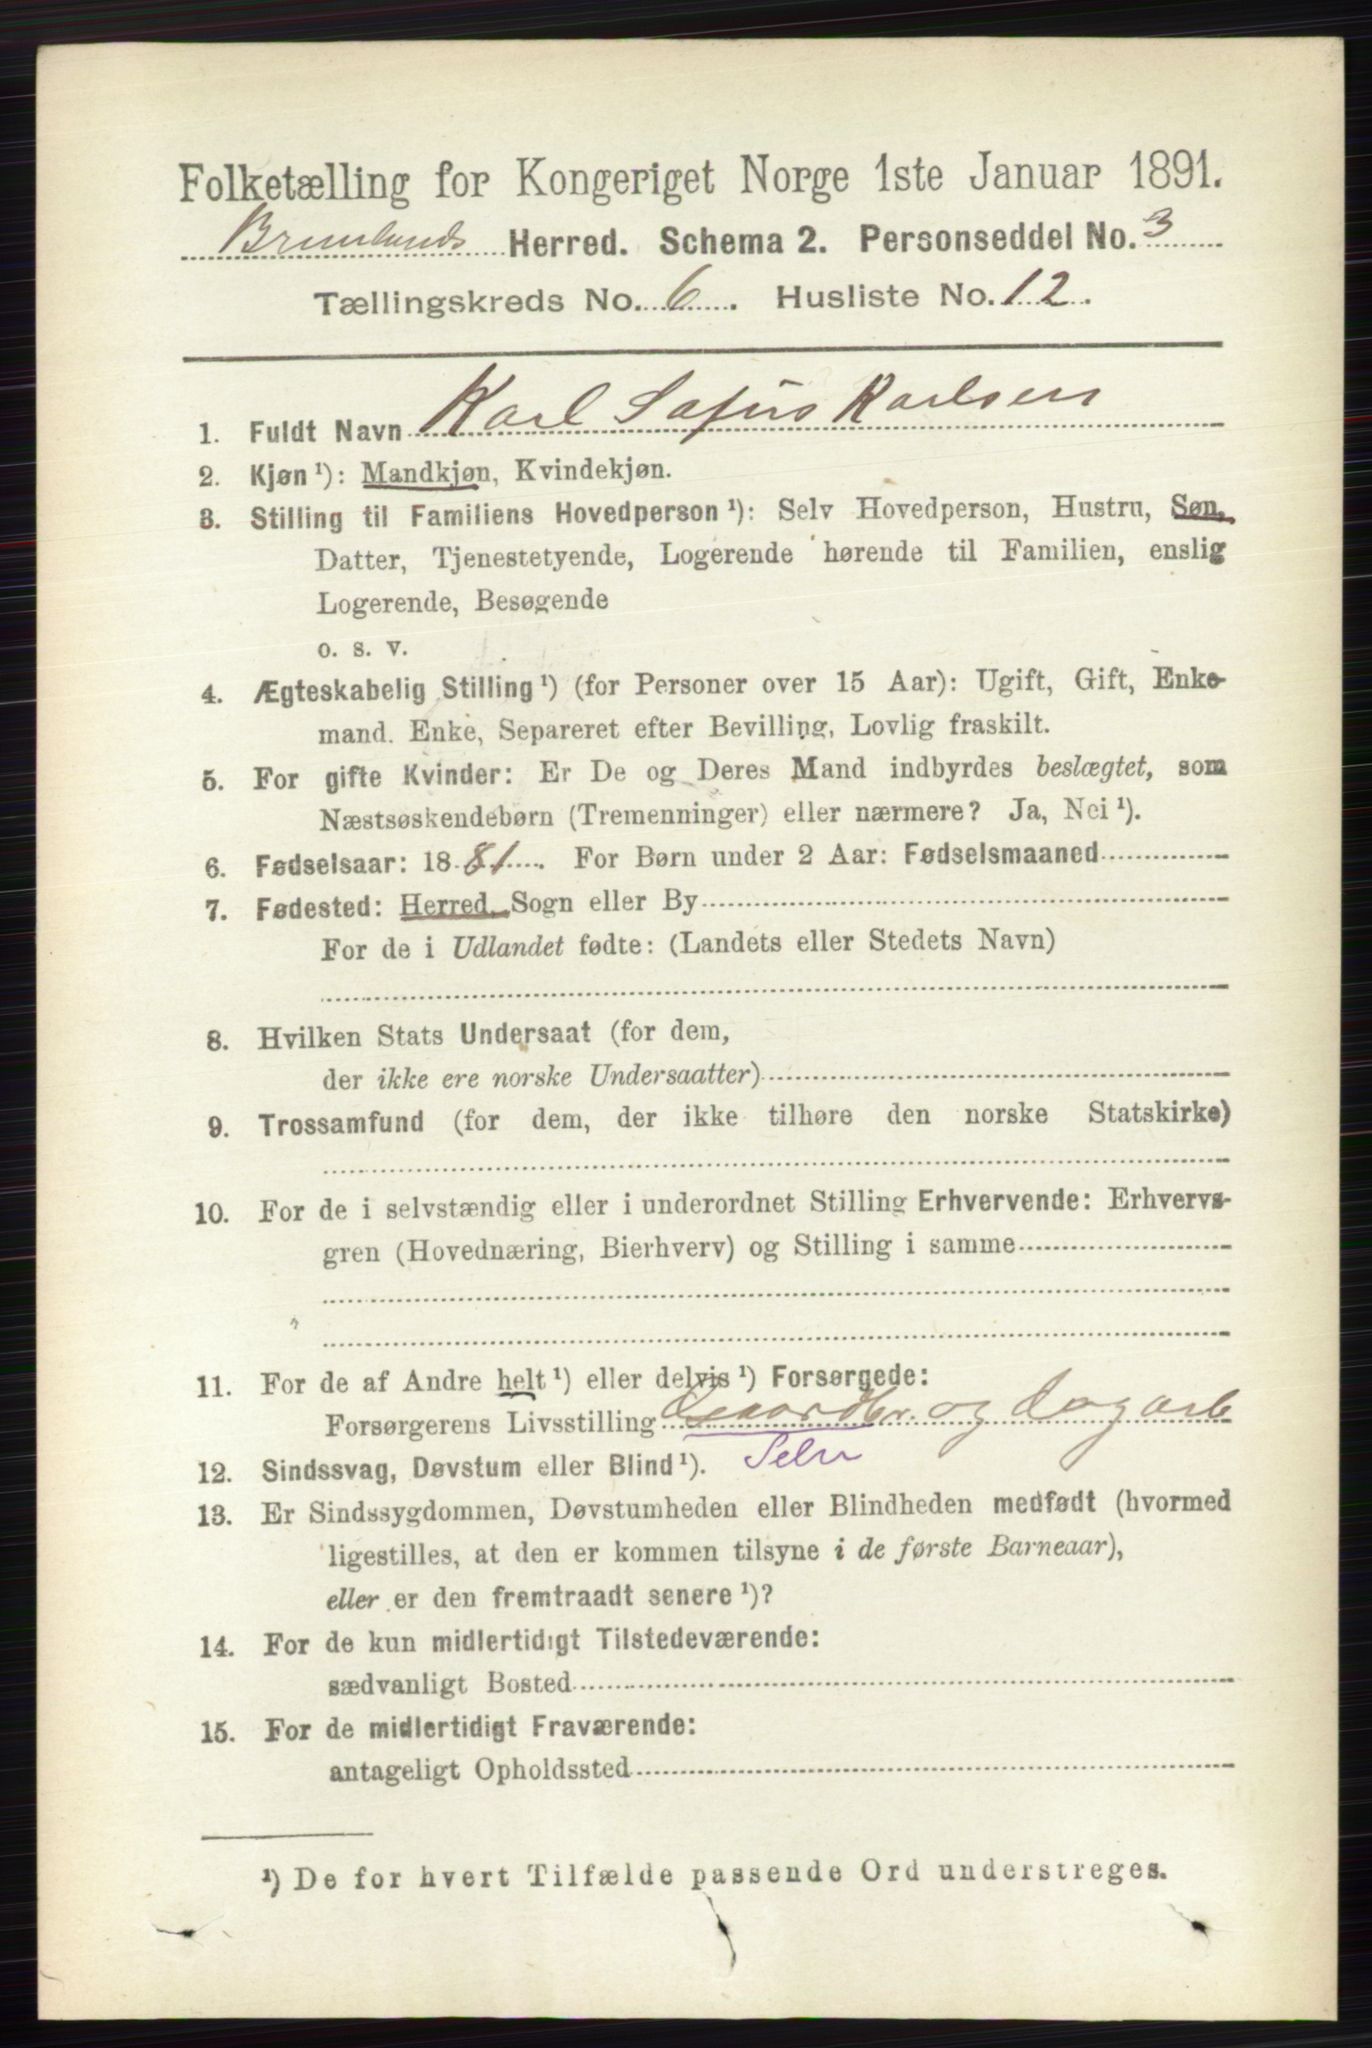 Folketælling for Kongeriget Norge 1ste Januar 1891.
Brunlands Herred. Schema 2. Personseddel No. 3
Tællingskreds No. 6. Husliste No. 12.
1. Fuldt Navn Karl Sofus Karlsen
2. Kjøn ¹): Mandkjøn, Kvindekjøn.
3. Stilling til Familiens Hovedperson ¹): Selv Hovedperson, Hustru, Søn,
Datter, Tjenestetyende, Logerende hørende til Familien, enslig
Logerende, Besøgende
o. s. v.
4. Ægteskabelig Stilling ¹) (for Personer over 15 Aar): Ugift, Gift, Enke-
mand. Enke, Separeret efter Bevilling, Lovlig fraskilt.
5. For gifte Kvinder: Er De og Deres Mand indbyrdes beslægtet, som
Næstsøskendebørn (Tremenninger) eller nærmere? Ja, Nei ¹).
6. Fødselsaar: 1881. For Børn under 2 Aar: Fødselsmaaned
7. Fødested: Herred, Sogn eller By
For de i Udlandet fødte: (Landets eller Stedets Navn)
8. Hvilken Stats Undersaat (for dem,
der ikke ere norske Undersaatter)
9. Trossamfund (for dem, der ikke tilhøre den norske Statskirke)
10. For de i selvstændig eller i underordnet Stilling Erhvervende: Erhvervs-
gren (Hovednæring, Bierhverv) og Stilling i samme
11. For de af Andre helt ¹) eller delvis ¹) Forsørgede:
Forsørgerens Livsstilling Gaardbr. og Dagarb
12. Sindssvag, Døvstum eller Blind ¹). Selv
13. Er Sindssygdommen, Døvstumheden eller Blindheden medfødt (hvormed
ligestilles, at den er kommen tilsyne i de første Barneaar),
eller er den fremtraadt senere ¹)?
14. For de kun midlertidigt Tilstedeværende:
sædvanligt Bosted
15. For de midlertidigt Fraværende:
antageligt Opholdssted
¹) De for hvert Tilfælde passende Ord understreges.